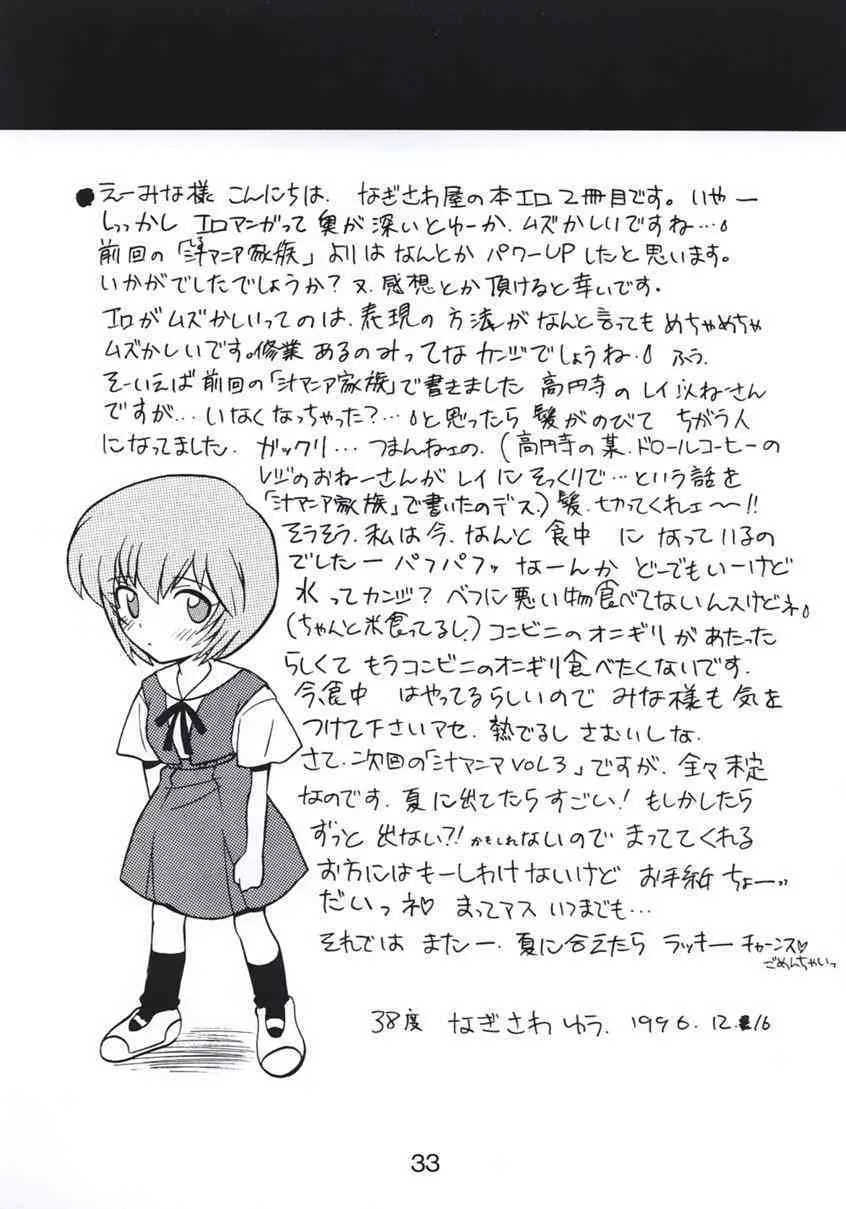 ●えーみな様 こんにちは、なぎさわ屋の本エロ2冊目です。いやー
しっかし エロマンガって 奥が深いとゆーか、ムズかしいですね…
前回の「汁マニア家族」よりは なんとか パワーUPしたと思います。
いかがでしたでしょうか？又、感想とか頂けると幸いです。
エロがムズかしいってのは、表現の方法がなんと言ってもめちゃめちゃ
ムズかしいです。修業あるのみってなカンジでしょうね・ふう、
そーいえば前回の「汁マニア家族」で書きました 高円寺のレイ似ねーさん
ですが…、いなくなっちゃった？…と思ったら 髪がのびて ちがう人
になってました、ガックリ…つまんねェの、(高円寺の某、ドロールコーヒーの
レジのおねーさんがレイにそっくりで…という話を
「汁マニア家族」で書いたのデス。)髪、切ってくれェ〜!!
そうそう、私は今、なんと 食中 になっているの
でしたー パフパフッ なーんか どーでもいーけど
水ってカンジ？ベツに悪い物食べてないんスけどネ。
(ちゃんと米食ってるし。)コンビニのオニギリがあたった
らしくて もうコンビニのオニギリ食べたくないです。
今、食中 はやってるらしいので みな様も気を
つけて下さいアセ、熱でるし さむいしな、
さて、次回の「汁マニアVOL3」ですが、全々未定
なのです、夏に出てたらすごい！もしかしたら
ずっと出ない?!かもしれないので まっててくれる
お方にはもーしわけないけど お手紙 ちょーッ
だいっネ♡ まってマス いつまでも…
それでは またー、夏に合えたら ラッキー チャーンス♡
ごめんちゃいっ
38度 なぎさわ ゆう、1996.12.16
33